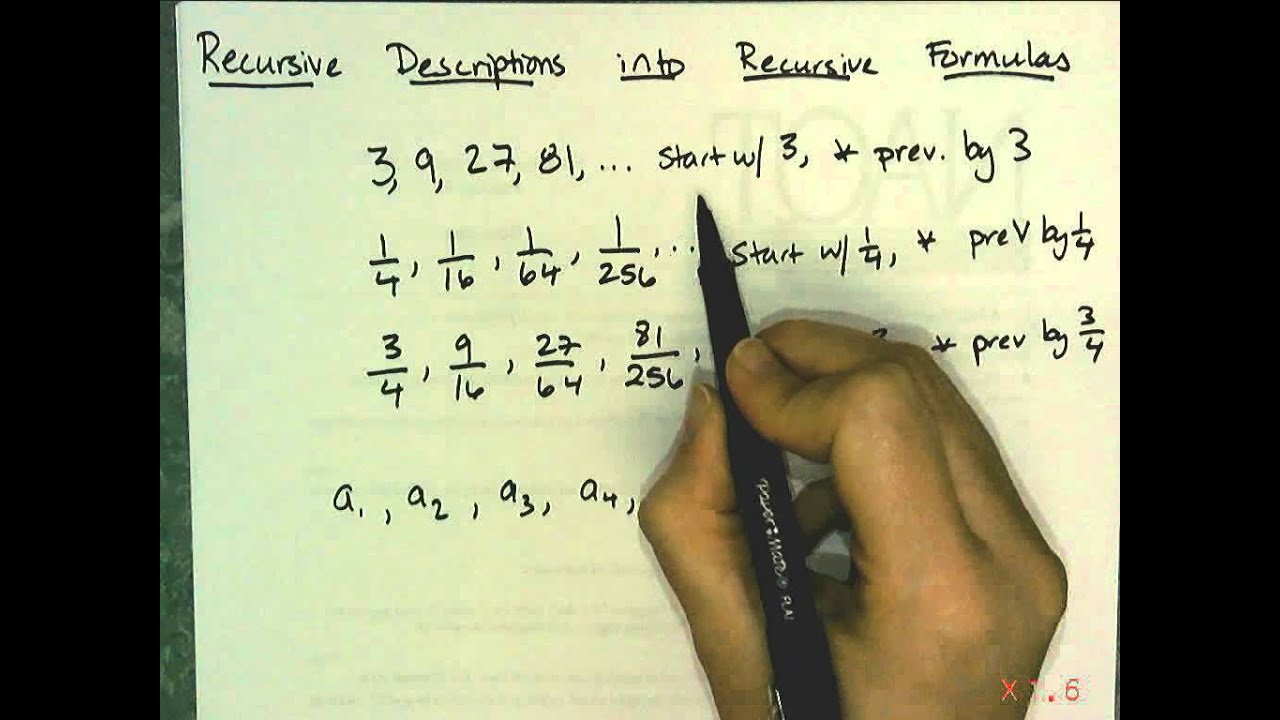 Recursive Descriptions into Recursive Formulas
3, 9, 27, 81, ... Start w/ 3, * prev. by 3
1/4, 1/16, 1/64, 1/256, ... Start w/ 1/4, * prev by 1/4
3/4, 9/16, 27/64, 81/256, * prev by 3/4
a₁, a₂, a₃, a₄,
X1.6